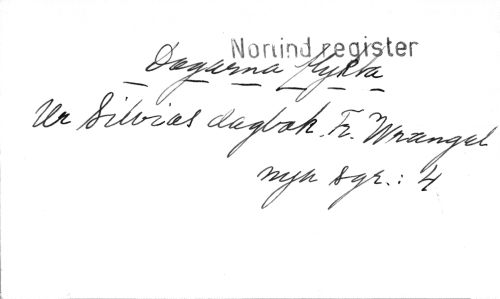 Nortind register
Dagarna flykta
Ur Silvias dagbok. Fr. Wrangel
nyk sgr.: 4